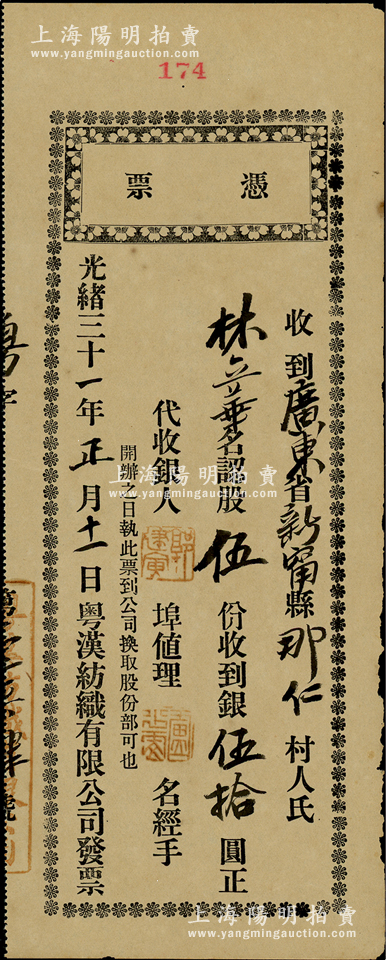 上海陽明拍賣
www.yangmingauction.com
174
憑票
收到廣東省新甯縣那仁村人氏
林立華名認股伍份收到銀伍拾圓正
代收銀人 埠值理 名經手
開辦之日執此票到公司換取股份部可也
光緒三十一年正月十一日粵漢紡織有限公司發票
上海陽明拍賣
www.yangmingauction.com
上海陽明拍賣
www.yangmingauction.com